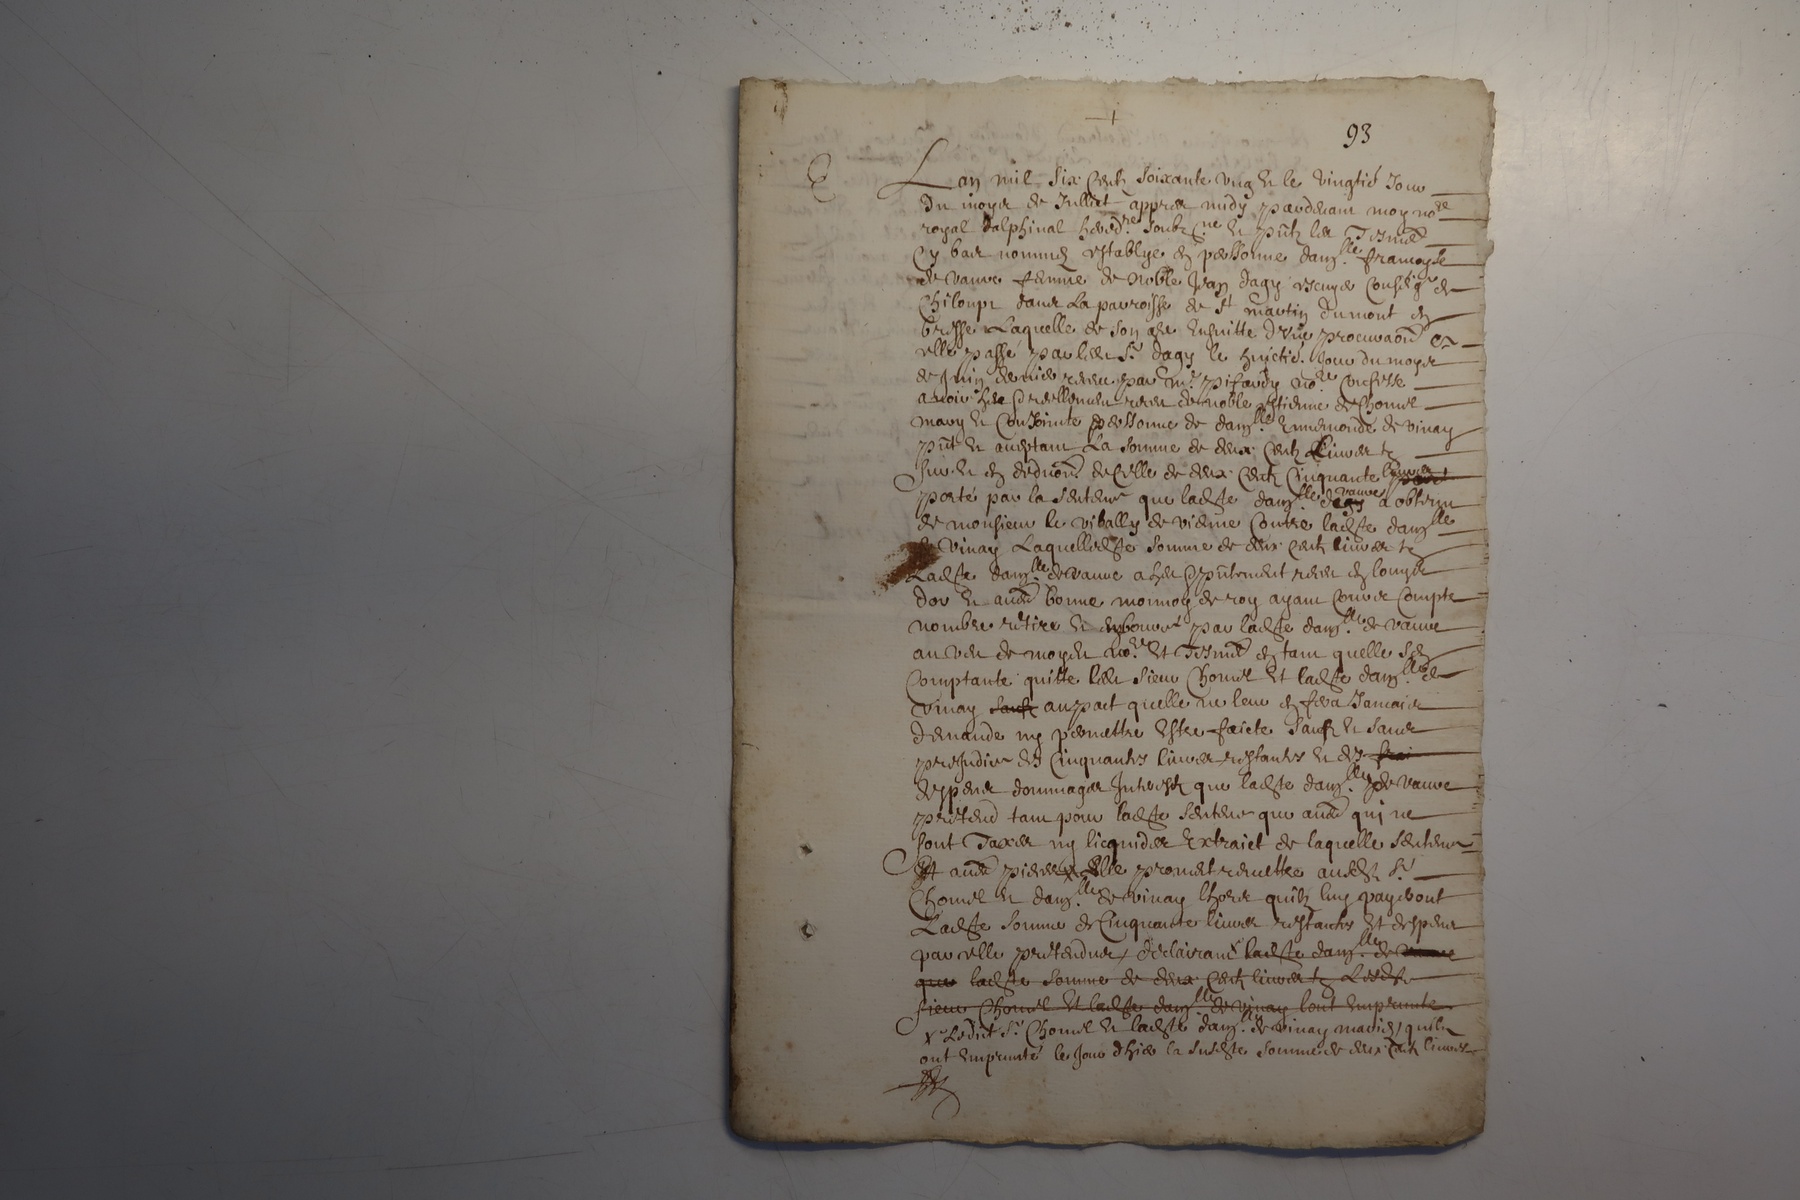 93
Lan mil six centz soixante ung et le vingtie Jour
du moys de Juillet appres midy pardevant moy nore
royal dalphinal hered.re soubz.ne et pntz les tesmes
cy bas nommez establye en personne damlle francoyse
de vaure femme de noble Jean dagy escuyer conseigr de
Chiloup dans La parroisse de st martin du mont en
bresse Laquelle de son gre ensuitte dune procuraon a
elle passé par led sr dagy le huictie Jour du moys
de Juin dernier receu par me pifardy nore confesse
avoir heu reellement receu de noble estienne de Chomel
mary et conjointe personne de damlle ennemonde de vinay
pnt et acceptant La somme de deux centz Livres tz
sur et en deduon de Celle de deux centz Cinquante livres
porté par la sentence que ladste damlle de vaure a obtenu
de monsieur le vibally de vienne contre ladste damlle
de vinay Laquelledste somme de deux centz livres tz
Ladste damlle de vaure a heu pntement receu en louys
dor et autre bonne monnoye de roy ayant cours compte
nombre retiré et emboursé par ladste damlle de vaure
au veu de moyd nore et tesmes en tant quelle sen
comptante quitte led sieur Chomel et ladste damlle de
vinay sauf au pact quelle ne leur en fera Jamais
demande ny permettre estre faicte sauf et sans
prejudice des Cinquantes livres restantes et des frai
despens dommages Interestz que ladste damlle de vaure
pretend tant pour ladste sentence que autre qui ne
sont Taxes ny licquides extraict de laquelle sentence
et autre pieces elle promet remettre ausdtz sr
Chomel et damlle de vinay lhors quilz luy payeront
Ladste somme de Cinquante livres restantes et despens
par elle pretendues / declairant x ladste damlle de vaure
que ladste somme de deux centz livres tz Ledst
sieur Chomel et ladste damlle de vinay lont emprunte
x Ledict sr Chomel et ladste damlle de vinay maries / quilz
ont emprunté le Jour dhier la susdste somme de deux centz livres